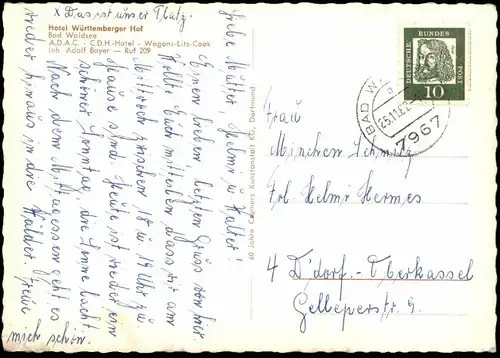 x Das ist unser Platz.
Hotel Württemberger Hof
Bad Waldsee
A.D.A.C. - C.D.H.-Hotel - Wagons-Lits-Cook
Inh. Adolf Bayer — Ruf 209
Liebe Mutter, Helmi u Walter!
Einen lieben letzten Gruss von hier.
Wollte Euch mitteilen dass wir am
Mittwoch zwischen 18 u 19 Uhr zu
Hause sind. Heute ist wieder ein
schöner Sonntag, die Sonne lacht.
Nach dem Mittagessen geht es
wieder hinaus in die Wälder. Freue
mich schön.
60 Jahre Cramers Kunstanstalt KG, Dortmund
DEUTSCHE
BUNDES
POST
10
BAD
25.11.62
7967
Frau
Minchen Schmitz
Frl. Helmi Hermes
4 D'dorf.-Oberkassel
Gelleperstr. 9.